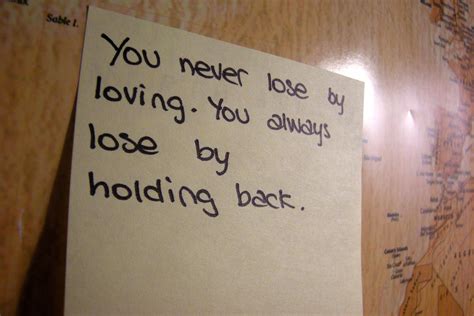 Sable I.
You never lose by
loving. You always
lose by
holding back.